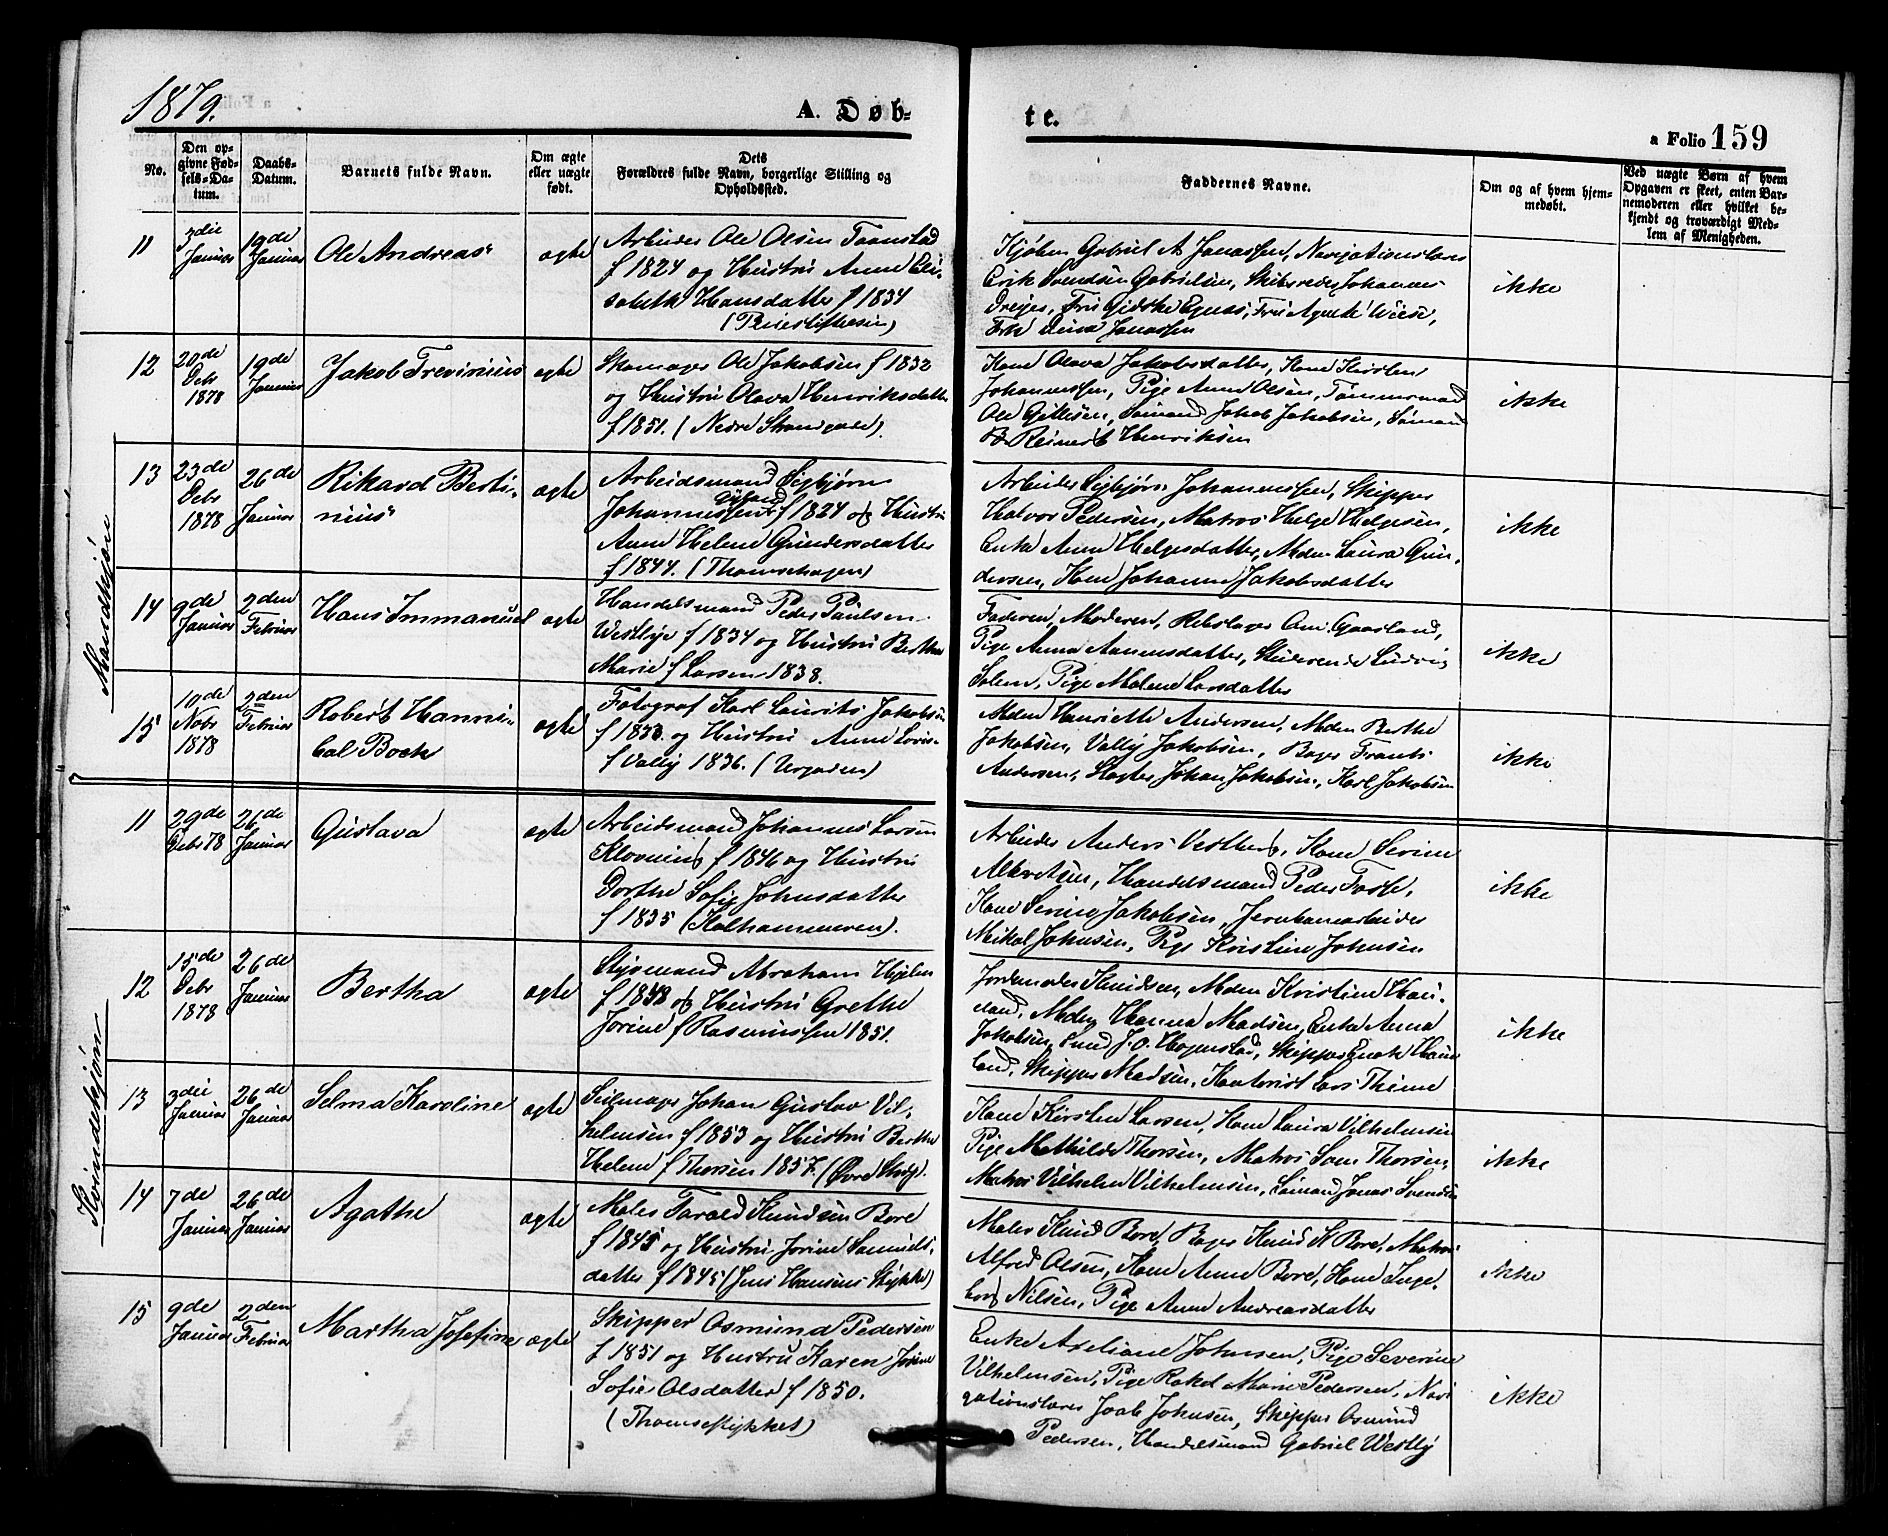 1879.
A. Døb-
te.
a Folio 159
No.
Den op-
givne Fød-
sels-Da-
tum.
Daabs-
Datum.
Barnets fulde Navn.
Om ægte
eller uægte
født.
Dets
Forældres fulde Navn, borgerlige Stilling og
Opholdssted.
Faddernes Navne.
Om og af hvem hjem-
medøbt.
Ved uægte Børn af hvem
Opgaven er skeet, enten Bar-
nemoderen eller hvilket be-
kjendt og troværdigt Med-
lem af Menigheden.
Mandkjøn
11
3die
Januar
19de
Januar
Ole Andreas
ægte
Arbeider Ole Olsen Taanstad
f 1824 og Hustru Anne Eli-
sabeth Hansdatter f 1834
Kjøbm. Gabriel A Jonassen, Navigationslærer
Erik Svendsen Gabrielsen, Skibsreder Johannes
Dreyer, Fru Gidske Egnæs, Fru Agnete Wiese,
Frk Dina Jonassen
ikke
12
20de
Debr
1878
19de
Januar
Jakob Trevinius
ægte
Skomager Ole Jakobsen f 1832
og Hustru Olava Henriksdatter
f 1851. (Nedre Strandgade).
Kone Olava Jakobsdatter, Kone Kirsten
Johannessen, Pige Anne Olsen, Tømmermand
Ole Gittesen, Sømand Jakob Jakobsen, Sømand
Reinert Henriksen
ikke
13
23de
Debr
1878
26de
Januar
Rikard Berti-
nius
ægte
Arbeidsmand Sigbjørn
Johannessen f 1824 og Hustru
Anne Helene Gundersdatter
f 1844. (Thomsehagen)
Arbeider Sigbjørn Johannessen, Skipper
Halvor Pedersen, Matros Helge Helgesen,
Enke Anne Helgesdatter, Mdm Laura Gun-
dersen, Kone Johanne Jakobsdatter
ikke
14
9de
Januar
2den
Februar
Hans Immanuel
ægte
Handelsmand Peder Paulsen
Westlye f 1834 og Hustru Berthe
Marie f Larsen 1838.
Faderen, Moderen, Rebslager Om. Gaasland,
Pige Anna Aanensdatter, Studerende Ludvig
Salem, Pige Malene Larsdatter
ikke
15
10de
Nobr
1878
2den
Februar
Robert Hanni-
bal Boch
ægte
Fotograf Karl Laurits Jakobsen
f 1833 og Hustru Anne Lovise
f Valby 1836. (Urgaden)
Mdm Henriette Andersen, Mdm Berthe
Jakobsen, Valby Jakobsen, Bager Frants
Andersen, Slagter Johan Jakobsen, Karl Jakobsen
ikke
Kvindekjøn
11
29de
Debr 78
26de
Januar
Gustava
ægte
Arbeidsmand Johannes Larsen
Klovning f 1846 og Hustru
Dorthe Sofie Johnsdatter
f 1835 (Kalhammeren).
Arbeider Anders Vestberg, Kone Serine
Albretsen, Handelsmand Peder Tosse,
Kone Serine Jakobsen, Jernbanearbeider
Mikal Johnsen, Pige Kristine Johnsen
ikke
12
15de
Debr
1878
26de
Januar
Bertha
ægte
Styrmand Abraham Hjelm
f 1848 og Hustru Grethe
Jorine f Rasmussen 1851.
Jordemoder Knudsen, Mdm Kristine Hau-
land, Mdm Hanna Madsen, Enke Anna
Jakobsen, Smed J. O. Hogenstad, Skipper Enok Hau-
land, Skipper Madsen, Kontorist Lars Thime
ikke
13
3die
Januar
26de
Januar
Selma Karoline
ægte
Seilmager Johan Gustav Vil-
helmsen f 1853 og Hustru Berthe
Helene f Thorsen 1857. (Øvre Strg).
Kone Kirsten Larsen, Kone Laura Vilhelmsen
Pige Mathilde Thorsen, Matros Som Thorsen,
Matros Vilhelm Vilhelmsen, Sømand Jonas Svendsen
ikke
14
7de
Januar
26de
Januar
Agathe
ægte
Maler Tarald Knudsen Bore
f 1845 og Hustru Jorine Samuels-
datter f 1845 (Jens Hansens Stykke)
Maler Knud Bore, Bager Knud K Bore, Matros
Alfred Olsen, Kone Anne Bore, Kone Inge-
borg Nilsen, Pige Anne Andreasdatter
ikke
15
9de
Januar
2den
Februar
Martha Josefine
ægte
Skipper Osmund Pedersen
f 1851 og Hustru Karen Jorine
Sofie Olsdatter f 1850.
(Thomsestykket)
Enke Axeliane Johnsen, Pige Severine
Vilhelmsen, Pige Rakel Marie Pedersen, Navi
gationslærer Joab Johnsen, Skipper Osmund
Pedersen, Handelsmand Gabriel Westly
ikke